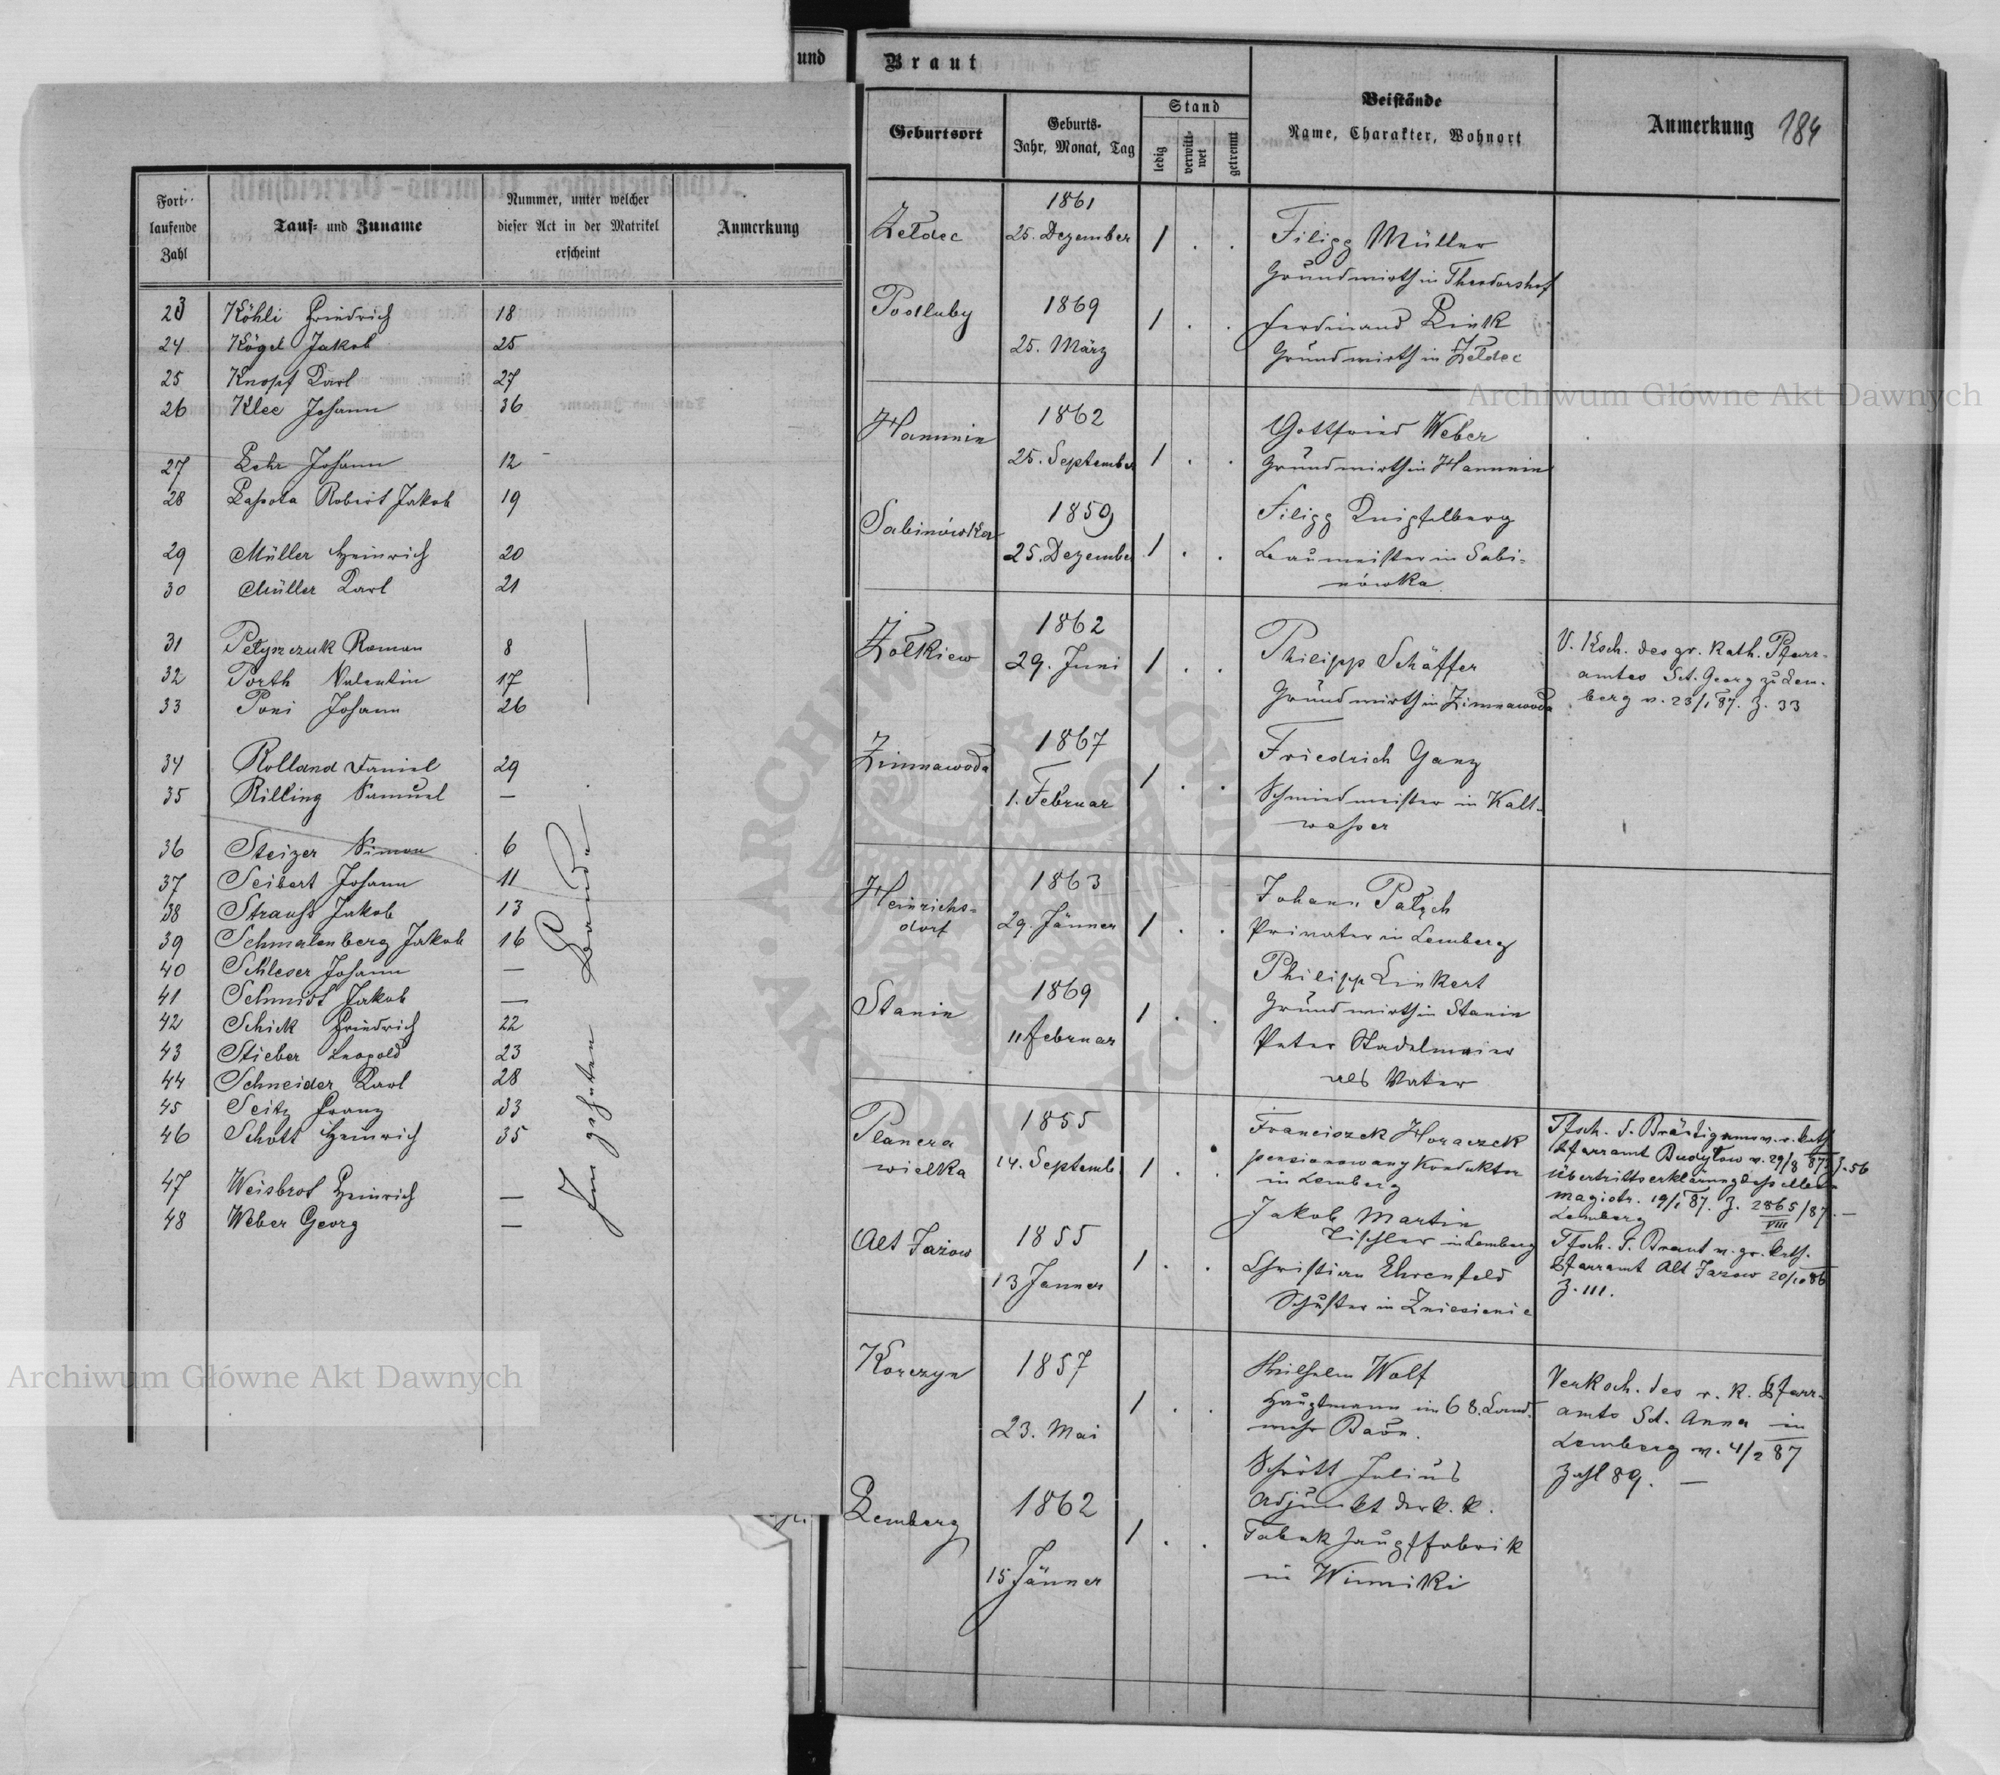 Fort-
laufende
Zahl
Tauf- und Zuname
Nummer, unter welcher
dieser Act in der Matrikel
erscheint
Anmerkung
23 Köhli Friedrich 18
24 Kögel Jakob 25
25 Knopf Karl 27
26 Klee Johann 36
27 Lehr Johann 12
28 Robert Jakob 19
29 Müller Heinrich 20
30 Müller Karl 21
31 Petyszczuk Roman 8
32 Porth Valentin 17
33 Poni Johann 26
34 Rolland Daniel 29
35 Rilling Samuel —
36 Steizer Simon 6
37 Seibert Johann 11
38 Strauß Jakob 13
39 Schmalenberg Jakob 16
40 Schleser Johann —
41 Schmidt Jakob —
42 Schick Friedrich 22
43 Stieber Leopold 23
44 Schneider Karl 28
45 Seitz Franz 33
46 Schott Heinrich 35
47 Weisbrot Heinrich —
48 Weber Georg —
Im zehnten Bande
und
Braut
Geburtsort
Geburts-
Jahr, Monat, Tag
Stand
ledig
verwitt-
wet
getrennt
Beistände
Name, Charakter, Wohnort
Anmerkung 184
1861
Żeldec 25. Dezember 1 . . Filipp Müller
Grundwirth in Theodorshof
Podluby 1869 1 . . Ferdinand Link
25. März Grundwirth in Żeldec
1862 Gottfried Weber
Hanunin 25. September 1 . . Grundwirth in Hanunin
Sabinówka 1859 Filipp Knipfelberg
25. Dezember 1 . . Baumeister in Sabi-
nówka.
Żółkiew 1862 Philipp Schäffer
29. Juni 1 . . Grundwirth in Zimnawoda
V. Ksch. des gr. kath. Pfarr-
amtes Sct. Georg zu Lem-
berg v. 23/1 87. Z. 33
Zimnawoda 1867 Friedrich Ganz
1. Februar 1 . . Schmiedmeister in Kalt-
waßer
Heinrichs-
dorf 1863 Johann
29. Jänner 1 . . Privater in Lemberg
Stanin 1869 Philipp Linkert
11 Februar 1 . . Grundwirth in Stanin
Peter Stadelmeier
als Vater
Plancza
wielka 1855 Franciszek Horaczek
14. Septemb 1 . . pensionowany Konduktor
in Lemberg
Jakob Martin
Tischler in Lemberg
Tfsch. d. Bräutigams v. r. kath
Pfarramt Budyłow v. 29/8 875 Z. 56
Übertrittserklärung desselben
Magistr. 19/1 87. Z. 2865/87. —
Lemberg VIII
Alt Jażow 1855 Christian Ehrenfeld
13 Jänner 1 . . Schuster in Zniesienie
Tfsch. d. Braut v. gr. kath.
Pfarramt Alt Jazow 20/10 86
Z. 111.
Korczyn 1857 Wilhelm Wolf
23. Mai 1 . . Hauptmann im 68. Land-
wehr Baon.
Verksch. des r. k. Pfarr-
amts Sct. Anna in
Lemberg v. 4/2 87
Zahl 89. —
Lemberg 1862 Schrött Julius
15 Jänner 1 . . Adjunkt der k. k.
Tabak Hauptfabrik
in Winniki
Archiwum Główne Akt Dawnych
Archiwum Główne Akt Dawnych
ARCHIWUM GŁÓWNE AKT DAWNYCH